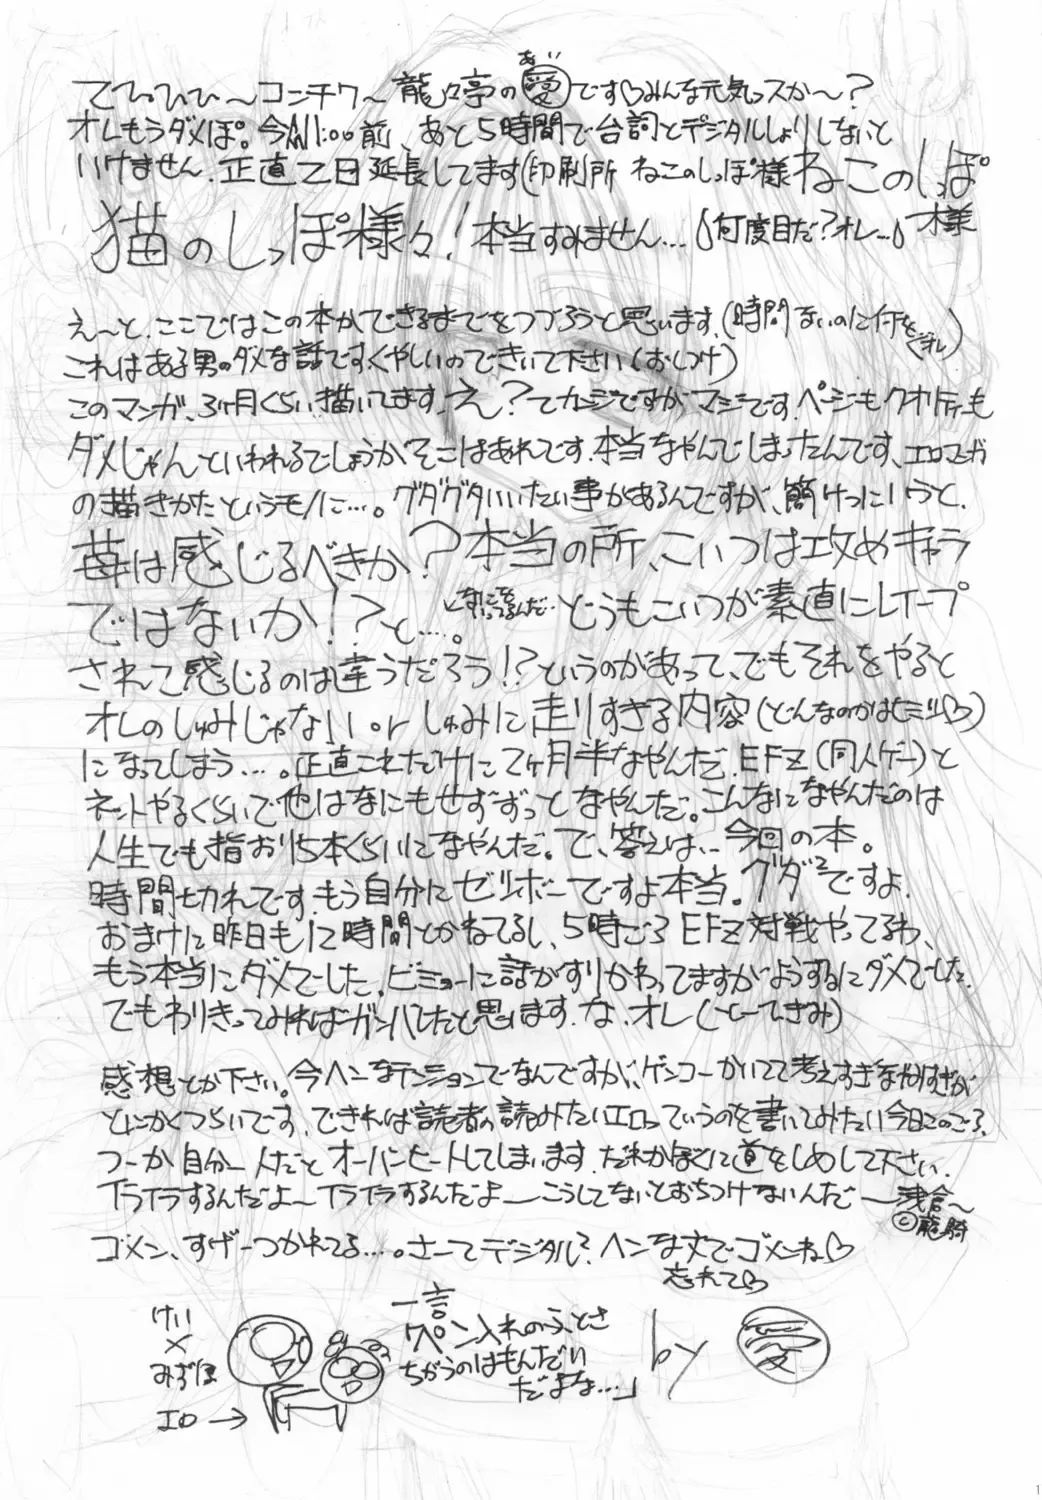 てひひひ～コンチワ～龍々亭の愛ですみんな元気っスか～?
あい
オレもうダメぽ。今AM1:00前、あと5時間で台詞とデジタルしょりしないと
いけません.正直乙日延長してます(印刷所 ねこのしっぽ様ねこのしっぽ様
猫のしっぽ様々!本当すみません…(何度目だ?オレ…)
え～と.ここではこの本ができるまでをつづろうと思います.(時間ないのに何を
これはある男のダメな話ですくやしいのできいて下さい(おしつけ)
このマンガ、3ヶ月くらい描いてます.え?てカンジですがマジです.ページもクオリティも
ダメじゃんといわれるでしょうがそこはあれです.本当なやんでしまったんです、エロマンガ
の描きかたというモノに…。グダグダいいたい事があるんですが、簡けつにいうと、
苺は感じるべきか?本当の所、こいつは攻めキャラ
ではないか!?と…。どうもこいつが素直にレイプ
されて感じるのは違うだろう!?というのがあって、でもそれをやると
オレのしゅみじゃない or しゅみに走りすぎる内容(どんなのかはヒミツ♡)
になってしまう…。正直これだけに2ヶ月半なやんだ.EFZ(同人ゲー)と
ネットやるくらいで他はなにもせずずっとなやんだ。こんなになやんだのは
人生でも指おり5本くらいになやんだ。で、答えは、…今回の本。
時間切れです.もう自分にゼリボーですよ本当。グダ²ですよ.
おまけに昨日も12時間とかねてるし、5時ごろEFZ対戦やってるわ、
もう本当にダメでした.ビミョーに話がすりかわってますがようするにダメでした.
でもわりきってみればガンバしたと思います.な、オレ(ひとってきみ)
感想とか下さい。今ヘンなテンションでなんですが、ゲンコーかいてて考えすぎなやみすぎが
とにかくつらいです.できれば読者の読みたいエロっていうのを書いてみたい今日このごろ.
つーか自分一人だとオーバーヒートしてしまいます.だれかぼくに道をしめして下さい.
イライラするんだよ～イライラするんだよ―こうしてないとおちつけないんだ―浅倉～
©龍騎
ゴメン、すげーつかれてる…。さーてデジタル².ヘンな文でゴメンね♡
忘れて♡
けい
×
みずほ
エロ→
一言
「ペン入れのふとさ
ちがうのはもんだい
だよな…」
by 愛
1